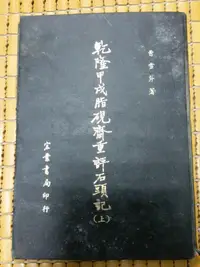 曹雪芹著
乾隆甲戌脂硯齋重評石頭記(上)
宏業書局印行